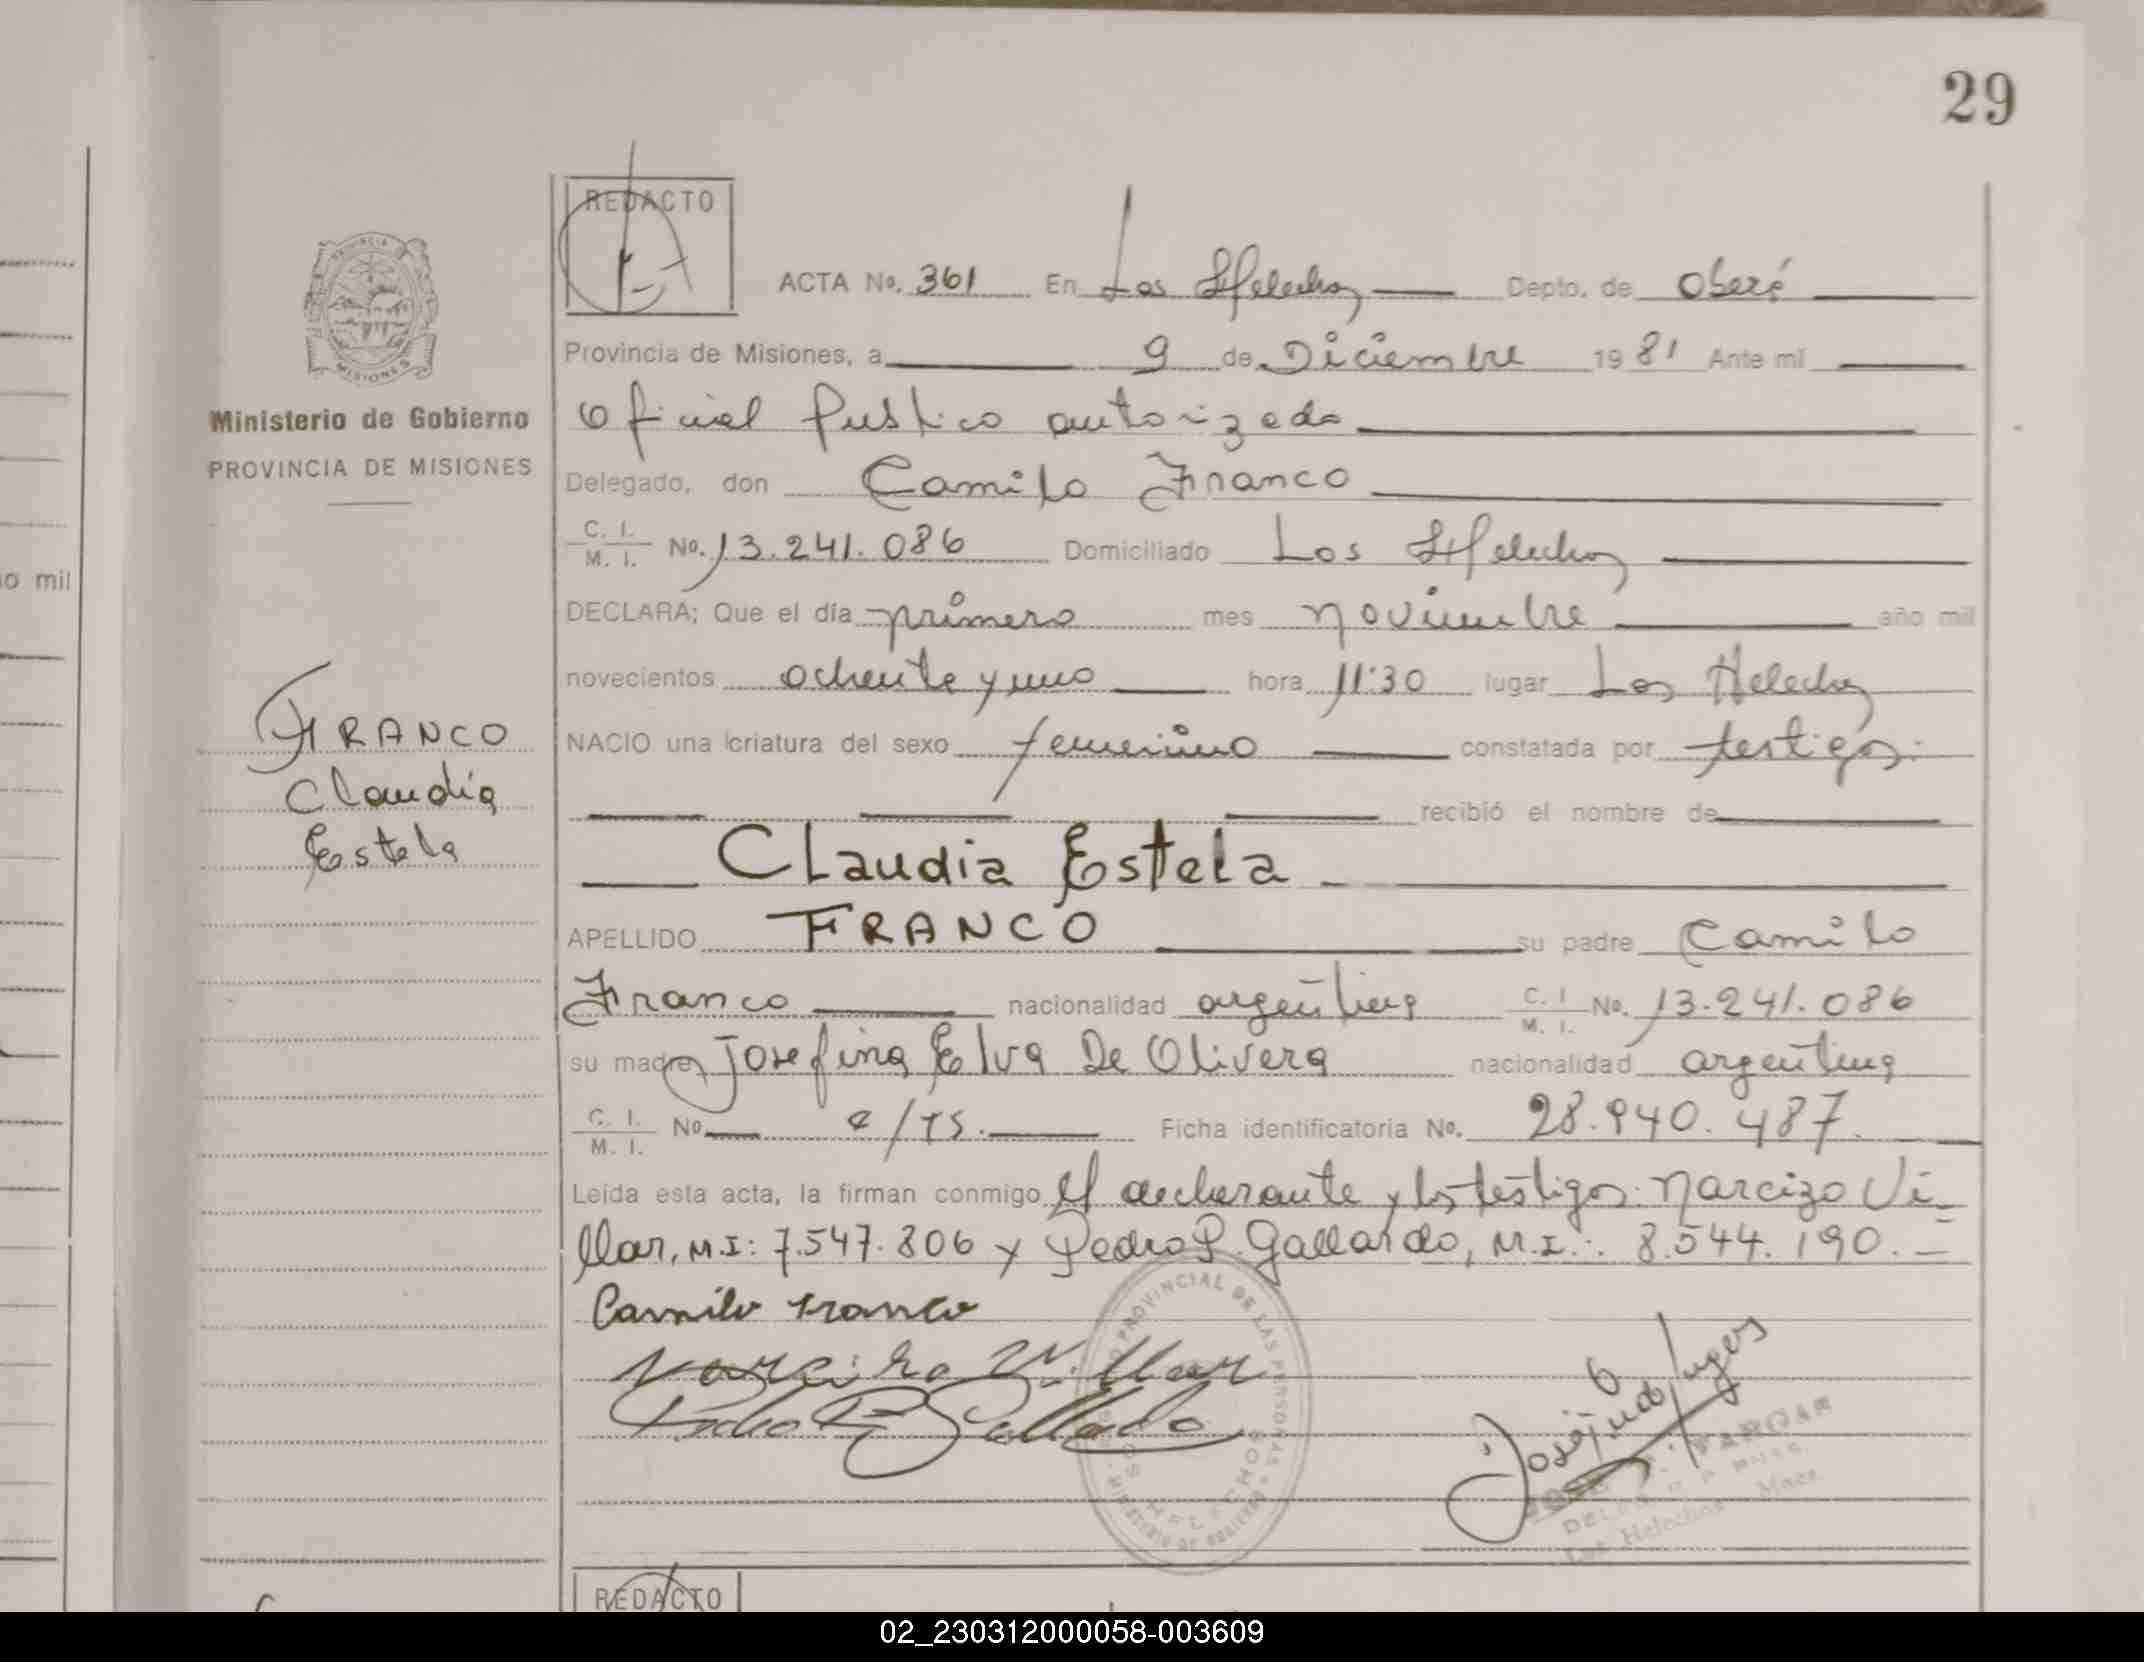 29
REDACTO
ACTA No. 361 En Los Helechos Depto. de Oberá
Provincia de Misiones, a 9 de Diciembre 1981 Ante mí
Oficial Publico autorizado
Delegado, don Camilo Franco
C. I. M. I. No. 13.241.086 Domiciliado Los Helechos
DECLARA; Que el día primero mes noviembre año mil
novecientos ochenta y uno hora 11:30 lugar Los Helechos
NACIO una criatura del sexo femenino constatada por testigos.
recibió el nombre de
Claudia Estela
APELLIDO FRANCO su padre Camilo
Franco nacionalidad argentina C. I. M. I. No. 13.241.086
su madre Josefina Elva De Olivera nacionalidad argentina
C. I. M. I. No Ficha identificatoria No. 28.940.487.
Leída esta acta, la firman conmigo el declarante y los testigos: Narcizo Vi-
llar, M.I: 7.547.806 y Pedro P. Gallardo, M.I.: 8.544.190.
Camilo Franco
Narciso Villar
Pedro P Gallardo
PROVINCIAL DE LAS PERSONAS
MINISTERIO DE GOBIERNO
HELECHOS
Los Helechos
PROVINCIA DE MISIONES
Ministerio de Gobierno
PROVINCIA DE MISIONES
FRANCO
Claudia
Estela
o mil
REDACTO
02_230312000058-003609